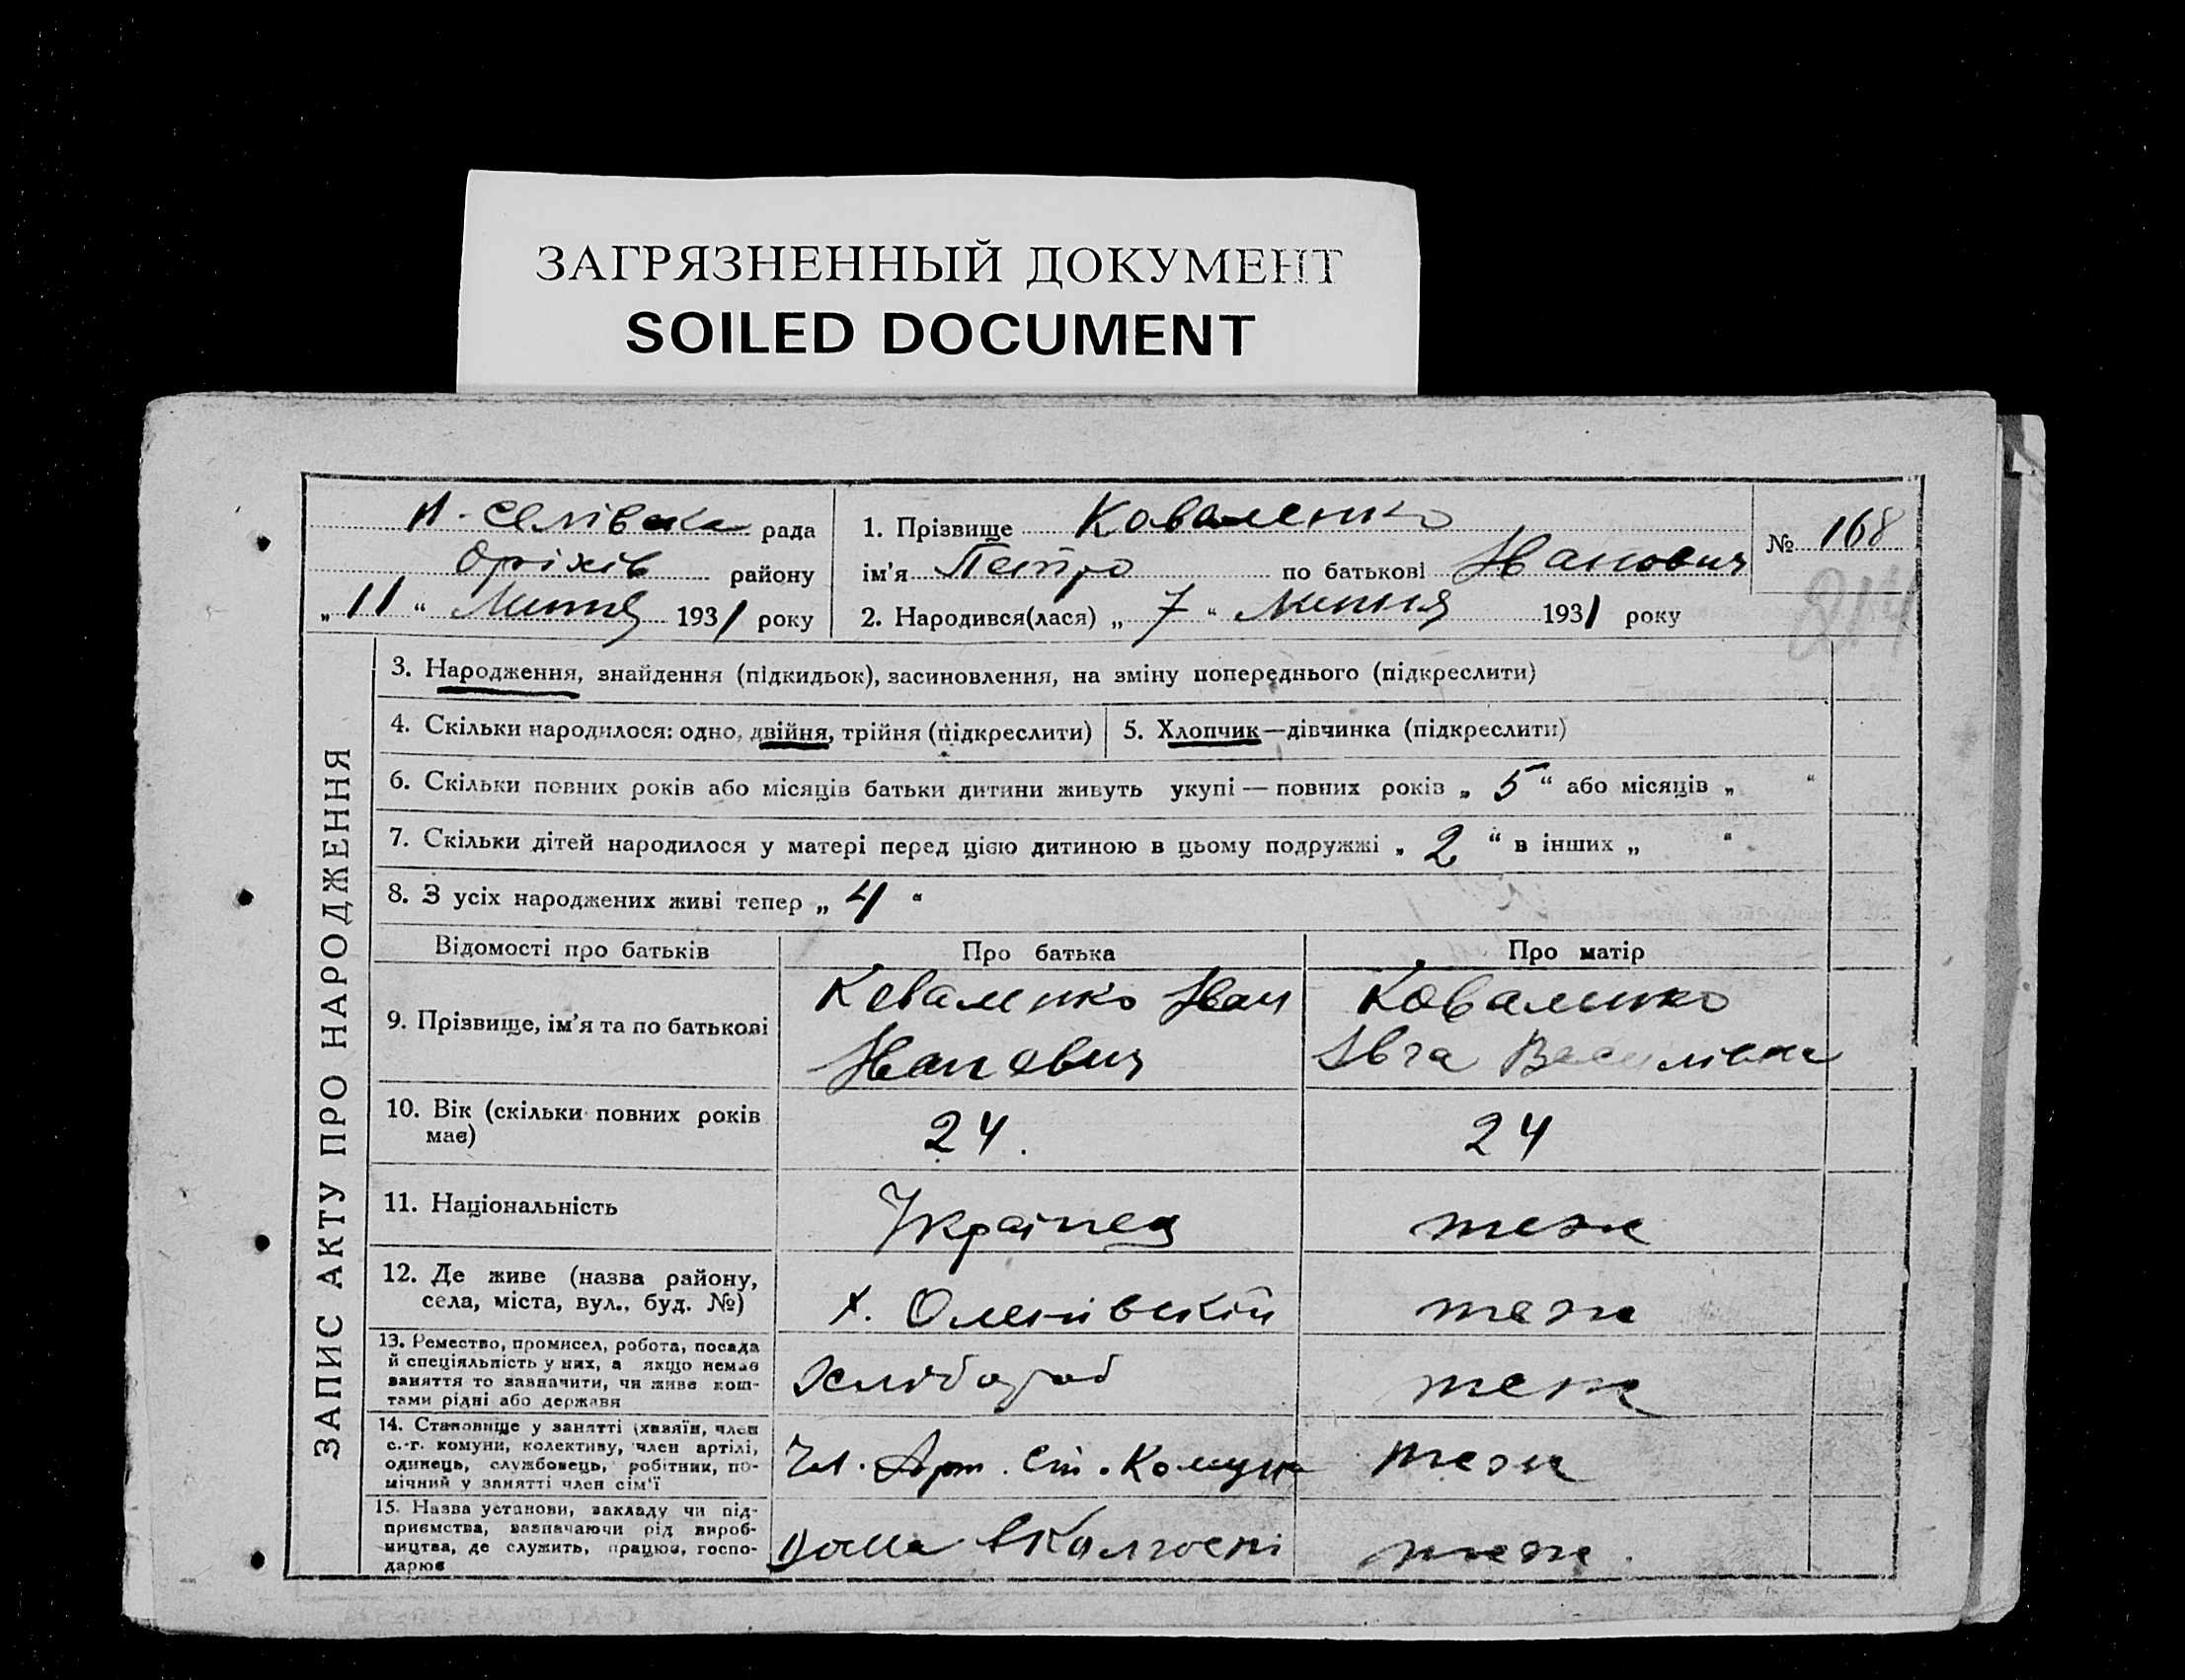 ЗАГРЯЗНЕННЫЙ ДОКУМЕНТ
SOILED DOCUMENT
рада
Оріхів району
„ 11 “ Липня 1931 року
1. Прізвище Коваленко
ім'я Петро по батькові Іванович
2. Народився(лася) „ 7 “ липня 1931 року
№ 168
214
ЗАПИС АКТУ ПРО НАРОДЖЕННЯ
3. Народження, знайдення (підкидьок), засиновлення, на зміну попереднього (підкреслити)
4. Скільки народилося: одно, двійня, трійня (підкреслити)
5. Хлопчик—дівчинка (підкреслити)
6. Скільки повних років або місяців батьки дитини живуть укупі — повних років „ 5 “ або місяців „ “
7. Скільки дітей народилося у матері перед цією дитиною в цьому подружжі „ 2 “ в інших „ “
8. З усіх народжених живі тепер „ 4 “
Відомості про батьків
Про батька
Про матір
9. Прізвище, ім'я та по батькові
Коваленко Іван
Іванович
Коваленко
Івга Василівна
10. Вік (скільки повних років
має)
24.
24
11. Національність
Українец
теж
12. Де живе (назва району,
села, міста, вул., буд. №)
х. Оленівский
теж
13. Ремество, промисел, робота, посада
й спеціяльність у них, а якщо немає
заняття то зазначити, чи живе кош-
тами рідні або держави
Хлібороб
теж
14. Становище у занятті (хазяїн, член
с.-г. комуни, колективу, член артілі,
одинець, службовець, робітник, по-
мічний у занятті член сім'ї
Чл. Арт.
теж
15. Назва установи, закладу чи під-
приємства, зазначаючи рід вироб-
ництва, де служить, працює, госпо-
дарює
Дома в Колгоспі
теж.